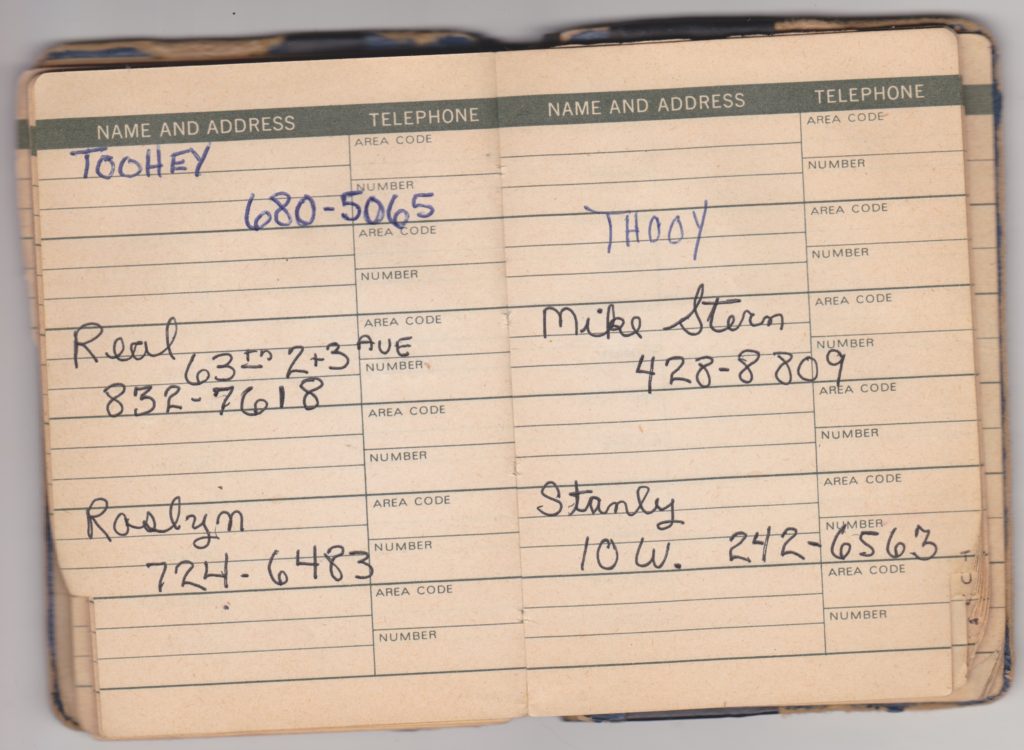 NAME AND ADDRESS TELEPHONE
AREA CODE
TOOHEY
NUMBER
680-5065
AREA CODE
NUMBER
AREA CODE
Real 63rd 2+3 AVE
NUMBER
832-7618
AREA CODE
NUMBER
AREA CODE
Roslyn
NUMBER
724-6483
AREA CODE
NUMBER
NAME AND ADDRESS TELEPHONE
AREA CODE
NUMBER
AREA CODE
THOOY
NUMBER
AREA CODE
Mike Stern
NUMBER
428-8809
AREA CODE
NUMBER
AREA CODE
Stanly
NUMBER
10 W. 242-6563
AREA CODE
NUMBER